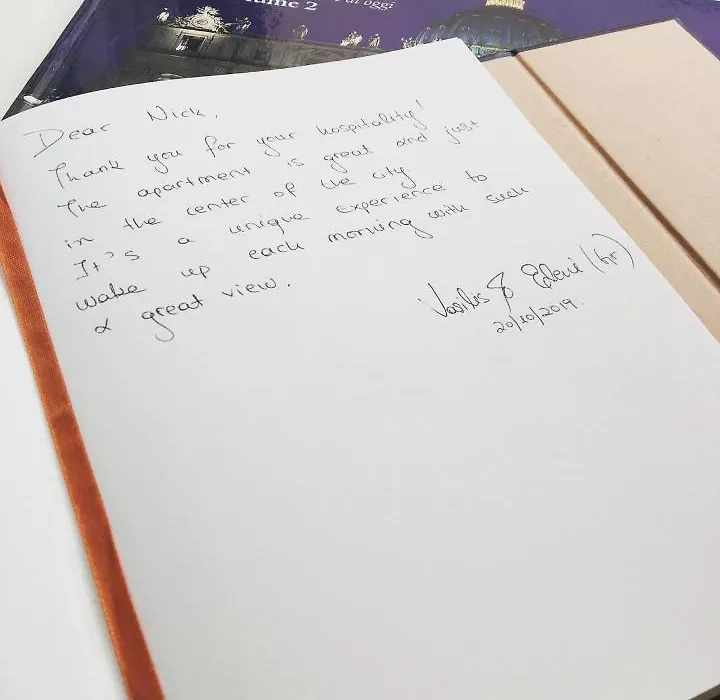 di oggi
ume 2
Dear Nick,
Thank you for your hospitality!
The apartment is great and just
in the center of the city
It's a unique experience to
wake up each morning with such
a great view.
Vasilis & Eleni (Gr)
20/10/2019.